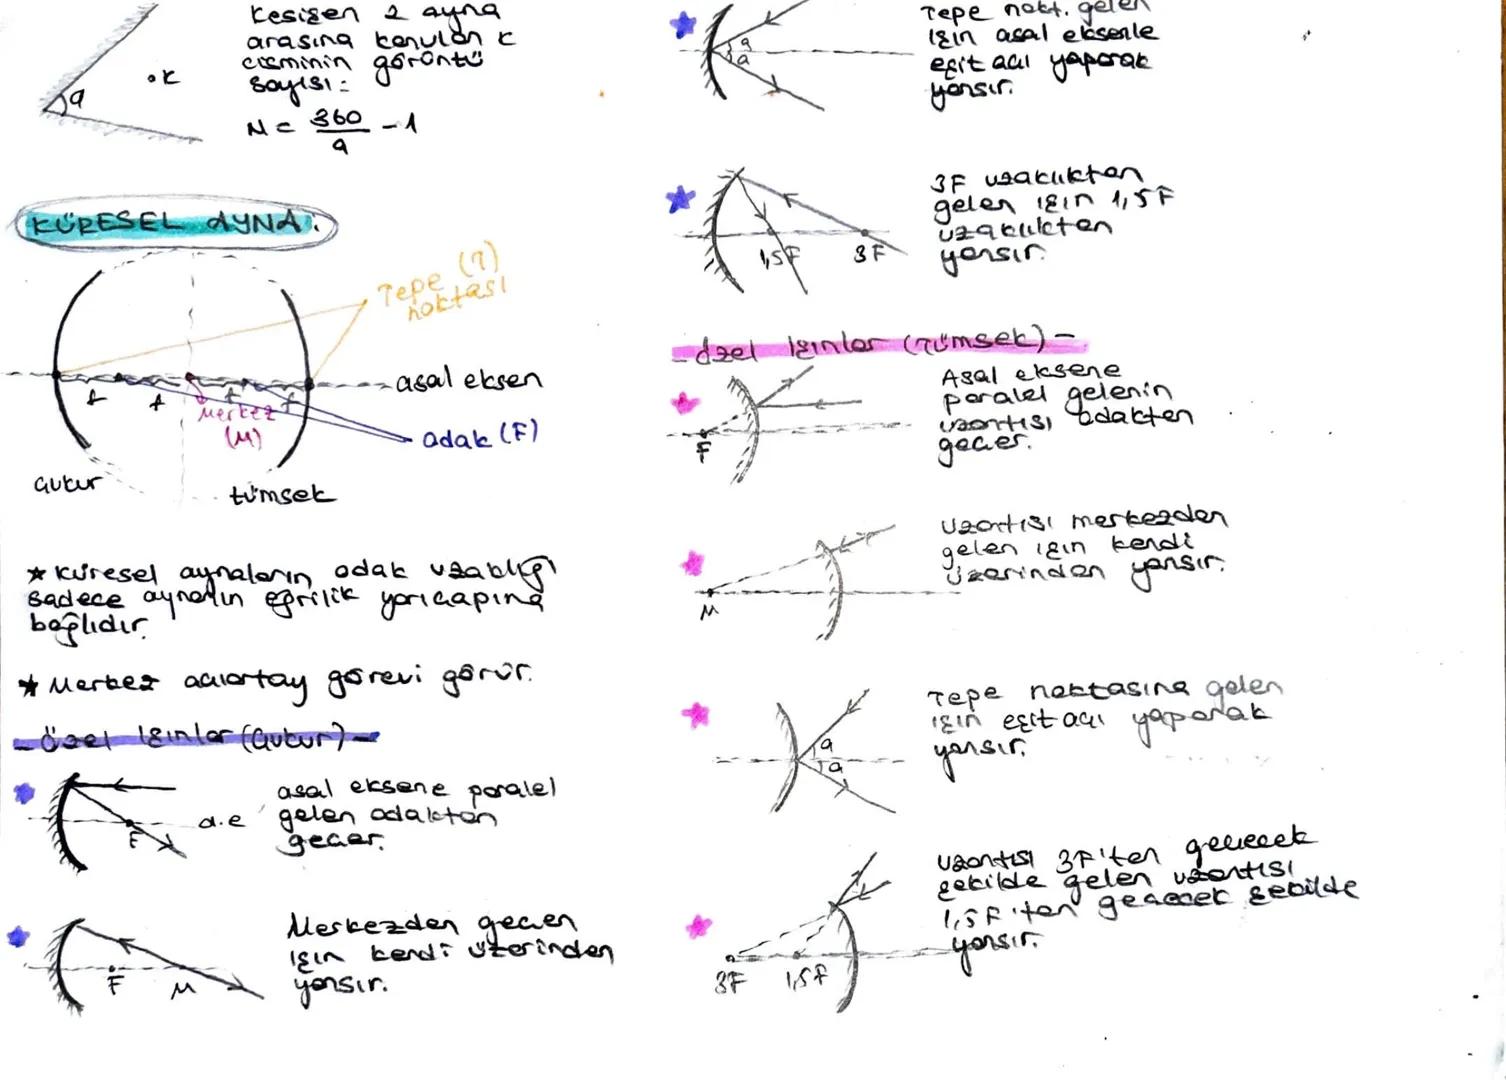 Kesişen 2 ayna
arasına konulan K
cisminin görüntü
sayısı:
N = 360/a - 1
•K
a
KÜRESEL AYNA:
Tepe (T)
noktası
asal eksen
f
f
f
f
Merkez
(M)
odak (F)
çukur
tümsek
* Küresel aynaların odak uzaklığı
sadece aynanın eğrilik yarıçapına
bağlıdır.
* Merkez açıortay görevi görür.
- Özel Işınlar (Çukur) -
asal eksene paralel
gelen odaktan
geçer.
a.e
F
Merkezden geçen
ışın kendi üzerinden
yansır.
F
M
Tepe nokt. gelen
ışın asal eksenle
eşit açı yaparak
yansır.
a
a
3F uzaklıktan
gelen ışın 1,5F
uzaklıktan
yansır.
1,5F
3F
- Özel Işınlar (Tümsek) -
Asal eksene
paralel gelenin
uzantısı odaktan
geçer.
F
Uzantısı merkezden
gelen ışın kendi
üzerinden yansır.
M
Tepe noktasına gelen
ışın eşit açı yaparak
yansır.
a
a
Uzantısı 3F'ten geçecek
şekilde gelen uzantısı
1,5F'ten geçecek şekilde
yansır.
3F
1,5F